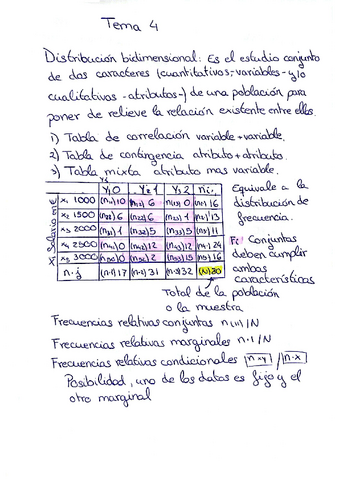 Tema 4
Distribución bidimensional: Es el estudio conjunto
de dos caracteres (cuantitativos,-variables-y/o
cualitativos -atributos-) de una población para
poner de relieve la relación existente entre ellos.
1) Tabla de correlación variable + variable.
2) Tabla de contingencia atributo + atributo.
3) Tabla mixta atributo mas variable.
Y1 0 Y2 1 Y3 2 ni.
Xi Salario en €
x1 1000 (n11) 10 (n12) 6 (n13) 0 (n1.) 16
x2 1500 (n21) 6 (n22) 6 (n23) 1 (n2.) 13
x3 2000 (n31) 1 (n32) 5 (n33) 5 (n3.) 11
x4 2500 (n41) 0 (n42) 12 (n43) 12 (n4.) 24
x5 3000 (n51) 0 (n52) 2 (n53) 15 (n5.) 16
n.j (n.1) 17 (n.2) 31 (n.3) 32 (N) 80
Equivale a la
distribución de
frecuencia.
Fi Conjuntas
deben cumplir
ambas
características
Total de la población
o la muestra
Frecuencias relativas conjuntas n(11)/N
Frecuencias relativas marginales n.1/N
Frecuencias relativas condicionales n xy / n.x
Posibilidad, uno de los datos es fijo y el
otro marginal